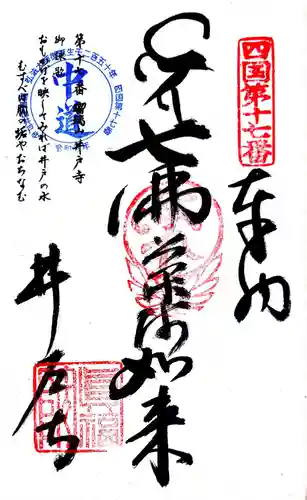 四国第十七番
奉納
七佛薬師如来
井戸寺
第十七番 瑠璃山 井戸寺
御詠歌
おもかげを映してみれば井戸の水
むすべば胸の垢やおちなむ
中道
四国第十七番